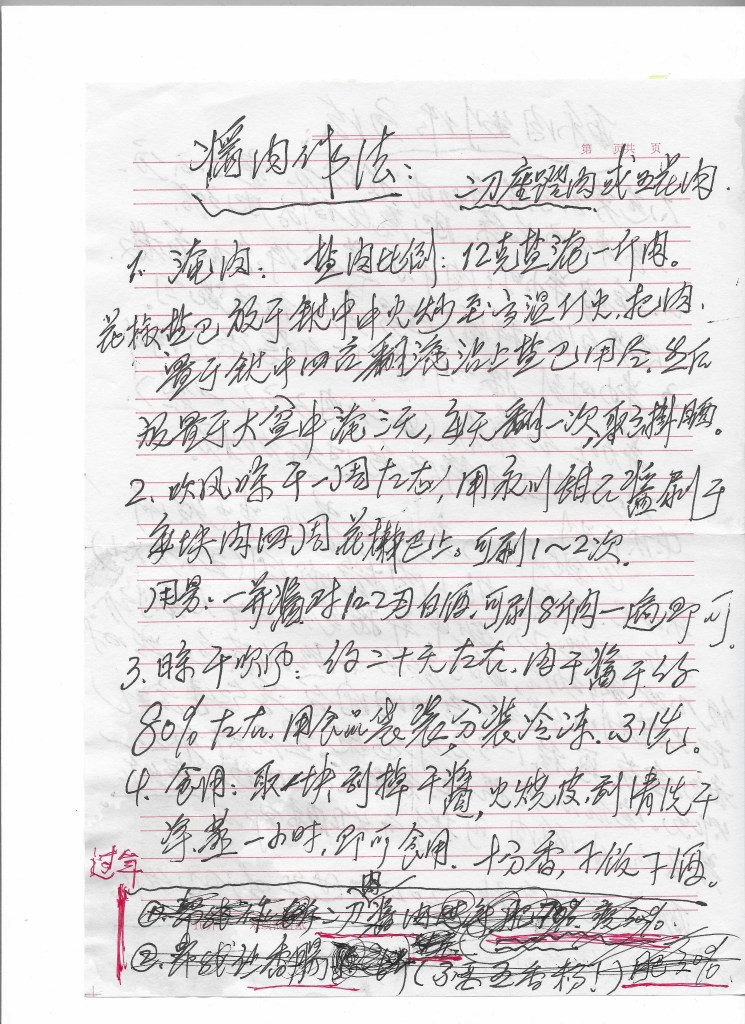 第 页共 页
酱肉作法:
二刀座蹬肉或五花肉.
1. 淹肉: 盐肉比例: 12克盐淹一斤肉。
花椒盐巴放于锅中中火炒至 温灯火.把肉、
置于锅中四 翻淹沾上盐巴用尽.然后
放置于大盆中淹三天,每天翻一次,取 掛晒。
2. 吹风晾干一周左右! 用永川甜 酱刷于
每块肉四周花椒巴上。可刷1~2次.
用 : 一 酱对 白酒.可刷8斤肉一遍即可.
3. 晾干吹 : 约二十天左右.肉干酱干约
80%左右.用食品袋装,分装冷冻.不洗。
4. 食用: 取一块,刮掉干酱,火烧皮,刮清洗干
净.蒸一小时.即可食用.十分香,下饭下酒。
过年
① 二刀酱肉 70% 瘦30%
② 香腸 (不 五香粉!) 肥30%